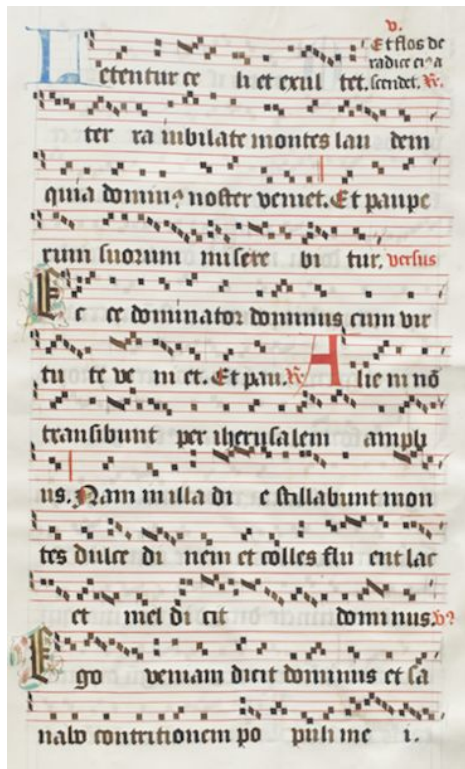 v.
Et flos de
radice eiꝰ a
Letentur ce li et exul tet. scendet. R.
ter ra iubilate montes lau dem
quia dominꝰ noster veniet. Et paupe
rum suorum misere bi tur. versus
Ec ce dominator dominus cum vir
tu te ve ni et. Et pau. R. Alie ni nō
transibunt per iherusalem ampli
us. Nam in illa di e stillabunt mon
tes dulce di nem et colles flu ent lac
et mel di cit dominus. v.
Ego veniam dicit dominus et sa
nabo contritionem po puli me i.